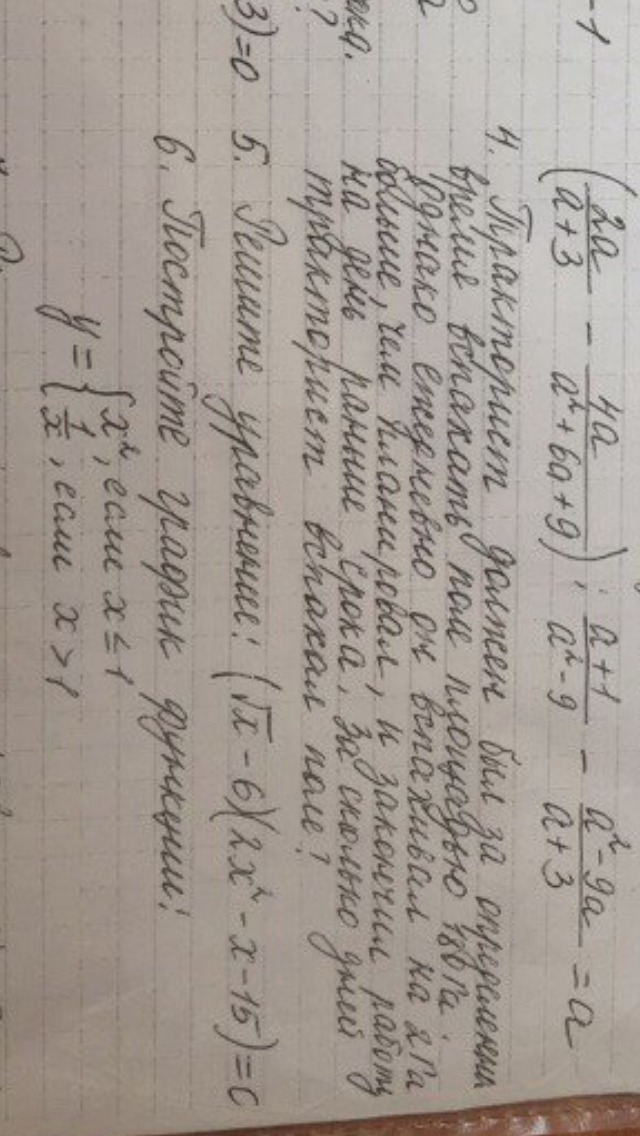 (2a/a+3 - 4a/a²+6a+9) : a+1/a²-9 - a²-9a/a+3 = a
4. Тракторист должен был за определенн
время вспахать поле площадью га.
Однако ежедневно он вспахивал на 2 га
больше, чем планировал, и закончил работу
на день раньше срока. За сколько дней
тракторист вспахал поле?
3)=0 5. Решите уравнение: (√x - 6)(2x² - x - 15) = 0
6. Постройте график функции:
y = { x², если x ≤ 1
1/x, если x > 1
-1
?